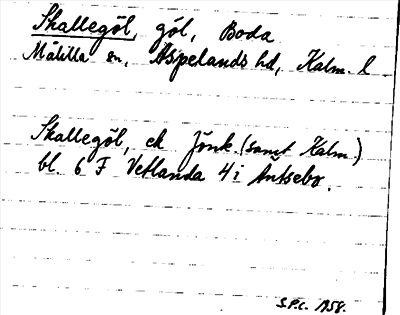 Skallegöl, göl, Boda
Målilla sn, Aspelands hd, Kalm. l
Skallegöl, ek Jönk. (samt Kalm.)
bl. 6 F Vetlanda 4 i Äntsebo.
S.P.C. 1958.